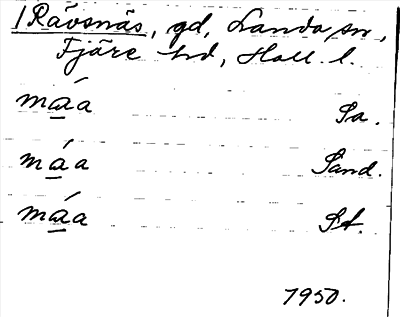 1 Rävsnäs, gd, Landa sn,
Fjäre hd, Hall. l.
máa Sa.
máa Sand.
máa St.
1950.